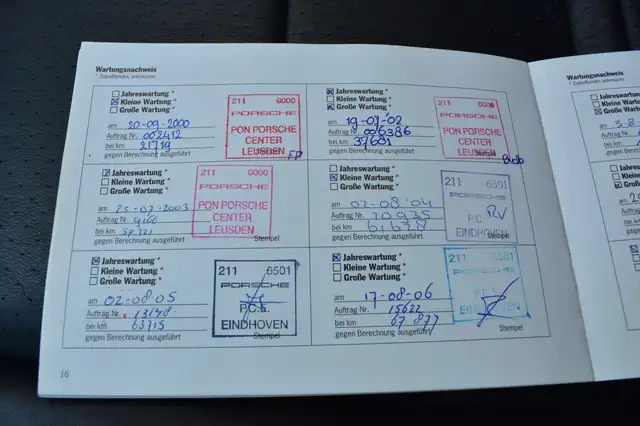 Wartungsnachweis
* Zutreffendes ankreuzen
Jahreswartung *
Kleine Wartung *
Große Wartung *
am 20-09-2000
Auftrag Nr. 002412
bei km 21719
gegen Berechnung ausgeführt
211 0000
PORSCHE
PON PORSCHE
CENTER
LEUSDEN
FP
Jahreswartung *
Kleine Wartung *
Große Wartung *
am 19-07-'02
Auftrag Nr. 006386
bei km 37681
gegen Berechnung ausgeführt
211 0000
PORSCHE
PON PORSCHE
CENTER
LEUSDEN
Jahreswartung *
Kleine Wartung *
Große Wartung *
am 25-07-2003
Auftrag Nr.
bei km
gegen Berechnung ausgeführt
211 0000
PORSCHE
PON PORSCHE
CENTER
LEUSDEN
Stempel
Jahreswartung *
Kleine Wartung *
Große Wartung *
am 02-08-'04
Auftrag Nr. 10935
bei km 61628
gegen Berechnung ausgeführt
211 6501
PORSCHE
RV
P.C.
EINDHOVEN
Stempel
Jahreswartung *
Kleine Wartung *
Große Wartung *
am 02-08-05
Auftrag Nr. 13148
bei km 63715
gegen Berechnung ausgeführt
211 6501
PORSCHE
EINDHOVEN
Stempel
Jahreswartung *
Kleine Wartung *
Große Wartung *
am 17-08-06
Auftrag Nr. 15622
bei km 67877
gegen Berechnung ausgeführt
211 6501
PORSCHE
Stempel
16
Wartungsnachweis
* Zutreffendes ankreuzen